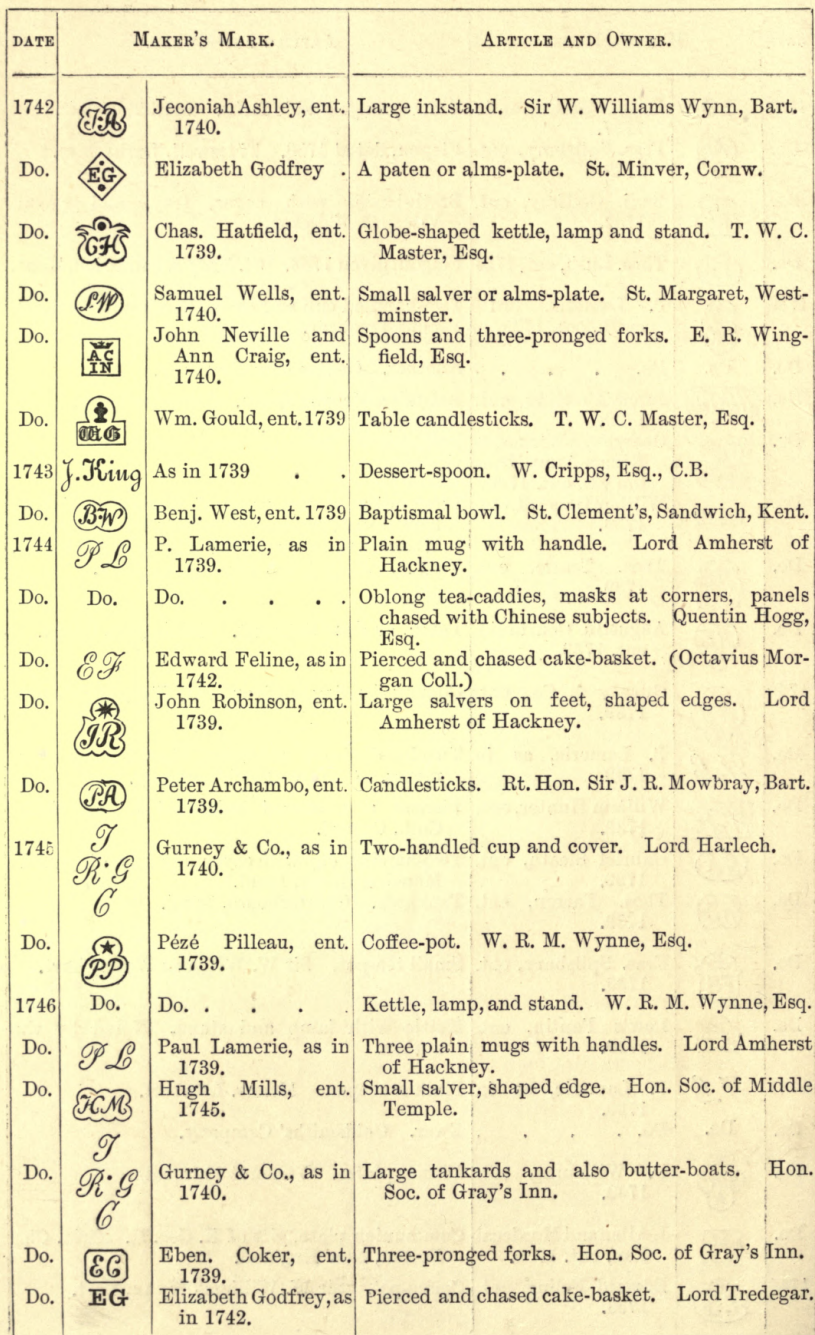 DATE MAKER'S MARK. ARTICLE AND OWNER.
1742 JA Jeconiah Ashley, ent. Large inkstand. Sir W. Williams Wynn, Bart.
1740.
Do. EG Elizabeth Godfrey . A paten or alms-plate. St. Minver, Cornw.
Do. CH Chas. Hatfield, ent. Globe-shaped kettle, lamp and stand. T. W. C.
1739. Master, Esq.
Do. SW Samuel Wells, ent. Small salver or alms-plate. St. Margaret, West-
1740. minster.
Do. AC John Neville and Spoons and three-pronged forks. E. R. Wing-
IN Ann Craig, ent. field, Esq.
1740.
Do. WG Wm. Gould, ent. 1739 Table candlesticks. T. W. C. Master, Esq.
1743 J. King As in 1739 . . Dessert-spoon. W. Cripps, Esq., C.B.
Do. BW Benj. West, ent. 1739 Baptismal bowl. St. Clement's, Sandwich, Kent.
1744 P L P. Lamerie, as in Plain mug with handle. Lord Amherst of
1739. Hackney.
Do. Do. Do. . . . . Oblong tea-caddies, masks at corners, panels
chased with Chinese subjects. Quentin Hogg,
Esq.
Do. E F Edward Feline, as in Pierced and chased cake-basket. (Octavius Mor-
1742. gan Coll.)
Do. JR John Robinson, ent. Large salvers on feet, shaped edges. Lord
1739. Amherst of Hackney.
Do. PA Peter Archambo, ent. Candlesticks. Rt. Hon. Sir J. R. Mowbray, Bart.
1739.
T
1745 R·G Gurney & Co., as in Two-handled cup and cover. Lord Harlech.
C 1740.
Do. PP Pézé Pilleau, ent. Coffee-pot. W. R. M. Wynne, Esq.
1739.
1746 Do. Do. . . . . Kettle, lamp, and stand. W. R. M. Wynne, Esq.
Do. P L Paul Lamerie, as in Three plain mugs with handles. Lord Amherst
1739. of Hackney.
Do. HM Hugh Mills, ent. Small salver, shaped edge. Hon. Soc. of Middle
1745. Temple.
T
Do. R·G Gurney & Co., as in Large tankards and also butter-boats. Hon.
C 1740. Soc. of Gray's Inn.
Do. EC Eben. Coker, ent. Three-pronged forks. Hon. Soc. of Gray's Inn.
1739.
Do. EG Elizabeth Godfrey, as Pierced and chased cake-basket. Lord Tredegar.
in 1742.